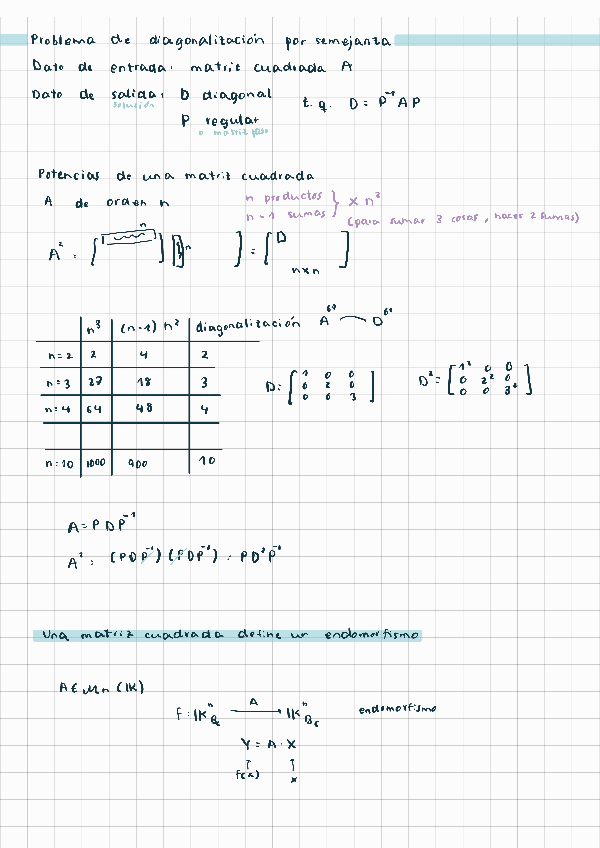 Problema de diagonalización por semejanza
Dato de entrada: matriz cuadrada A
Dato de salida: D diagonal
solución
t.q. D = P⁻¹ A P
P regular
o matriz paso
Potencias de una matriz cuadrada
A de orden n
n productos
n-1 sumas } × n²
(para sumar 3 cosas, hacer 2 sumas)
A² = [ n ] [ n ] = [ D ] n×n
n³ (n-1) n² diagonalización A⁶⁹ D⁶⁹
n=2 2 4 2
n=3 27 18 3
n=4 64 48 4
n=10 1000 900 10
D = [ 1 0 0
0 2 0
0 0 3 ]
D² = [ 1² 0 0
0 2² 0
0 0 3² ]
A = P D P⁻¹
A² = (P D P⁻¹) (P D P⁻¹) = P D² P⁻¹
Una matriz cuadrada define un endomorfismo
A ∈ Mn (K)
f : Kⁿ Bc —A→ Kⁿ Bc endomorfismo
Y = A · X
↑ ↑
f(x) x